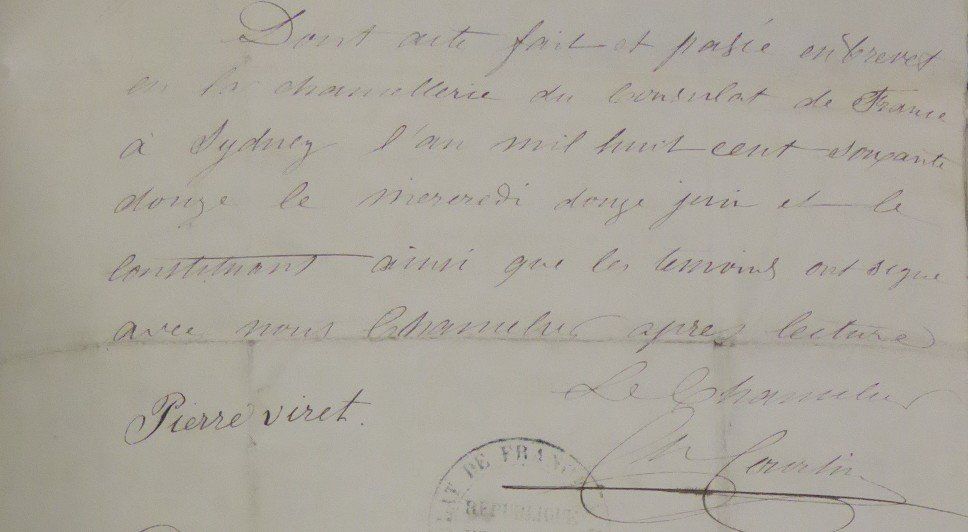 Dont acte fait et passé en brevet
en la chancellerie du Consulat de France
à Sydney l'an mil huit cent soixante
douze le mercredi douze juin et le
constituant ainsi que les temoins ont signé
avec nous Chancelier après lecture
Le Chancelier
Pierre viret.
Ch Courtin
AT DE FRANC
REPUBLIQUE